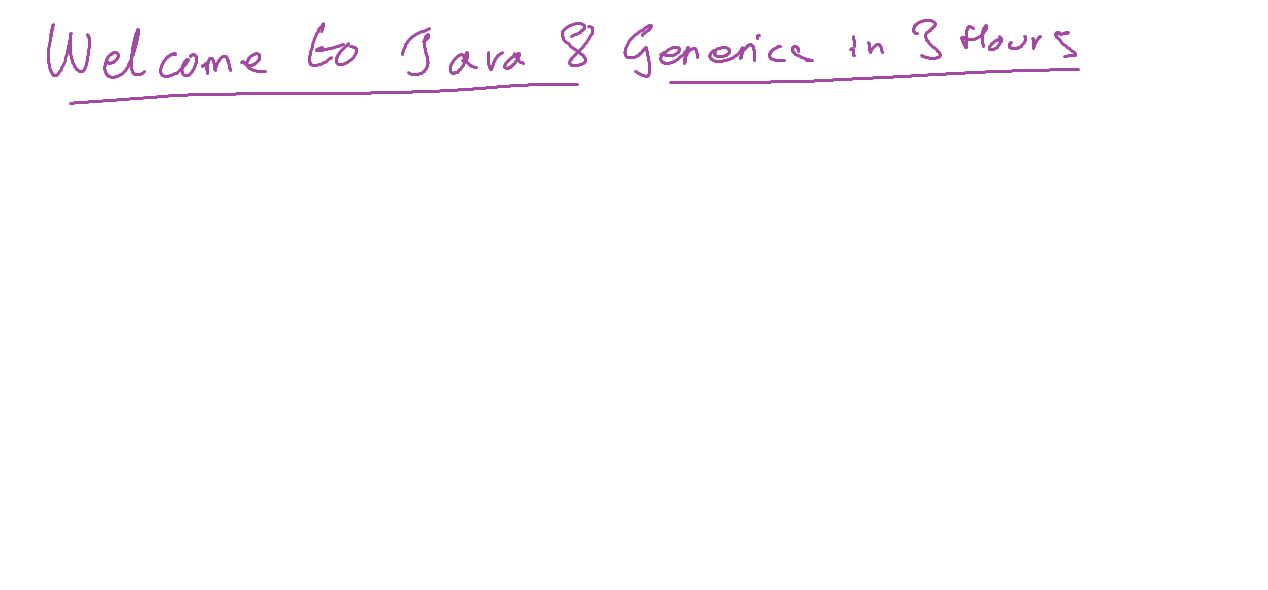 Welcome to Java 8 Generics in 3 Hours